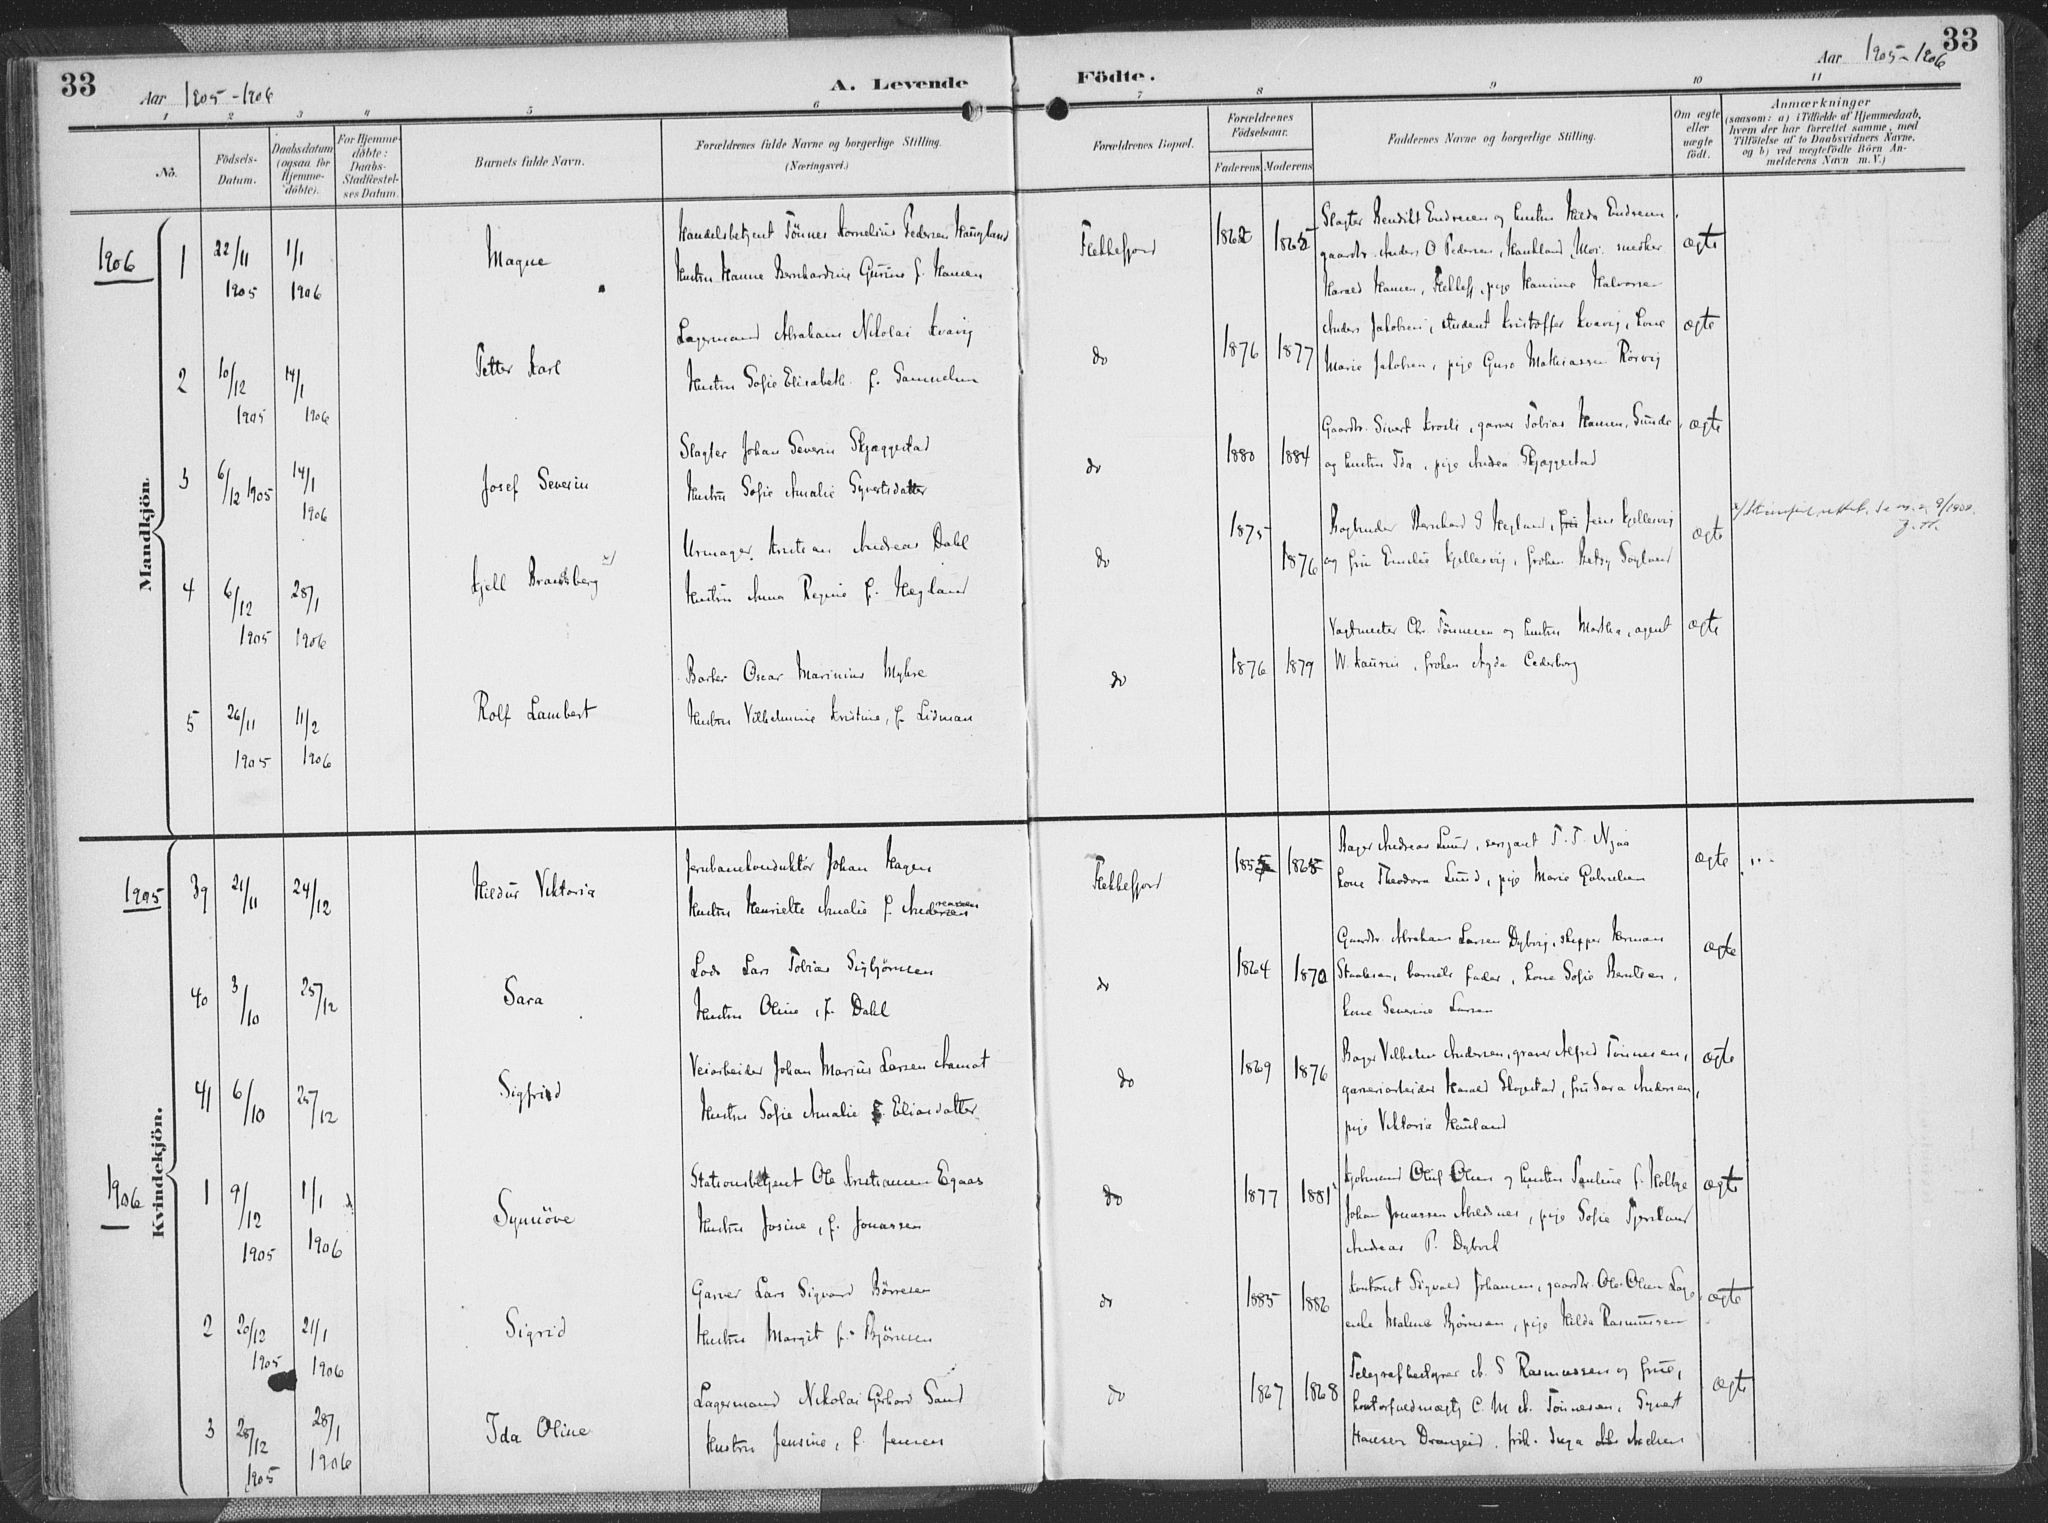 33
Aar 1905-1906
A. Levende
Födte.
Aar 1905-1906
33
1 2 3 4 5 6 7 8 9 10 11
No.
Födsels-Datum.
Daabsdatum (ogsaa for Hjemme-döbte).
For Hjemme-döbte: Daabs-Stadfæstel-ses Datum.
Barnets fulde Navn.
Forældrenes fulde Navne og borgerlige Stilling.
(Næringsvei.)
Forældrenes Bopæl.
Forældrenes Födselsaar.
Faderens Moderens
Faddernes Navne og borgerlige Stilling.
Om ægte eller uægte födt.
Anmærkninger
(saasom: a) i Tilfælde af Hjemmedaab, hvem der har forrettet samme, med Tilföielse af to Daabsvidners Navne, og b) ved uægtefödte Börn An-melderens Navn m. V.)
Mandkjön.
1906
1 22/11 1905 1/1 1906 Magne
Handelsbetjent Tönnes Kornelius Pedersen Haugland
Hustru Hanne Bernhardine Gurine f. Hansen
Flekkefjord 1862 1865
Slagter Bendikt Endresen og hustru Hilda Endresen,
gaardbr. Anders O Pedersen, Haukland, Mos. snedker
Harald Hansen, Flekkefj, pige Hansine Halvorsen
ægte
2 10/12 1905 14/1 1906 Petter Karl
Lagermand Abraham Nikolai Kvavig
Hustru Sofie Elisabeth f. Samuelsen
do 1876 1877
Anders Jakobsen, student Kristoffer Kvavig, kone
Marie Jakobsen, pige Guro Mathiassen Rörvig
ægte
3 6/12 1905 14/1 1906 Josef Severin
Slagter Johan Severin Skjæggestad
Hustru Sofie Amalie Syvertsdatter
do 1880 1884
Gaardbr. Sivert Krosli, garver Tobias Hansen, Sunde,
og hustru Ida, pige Andrea Skjæggestad
ægte
4 6/12 1905 28/1 1906 Kjell Brandsberg x/
Urmager Kristian Andreas Dahl
Hustru Anna Regine f. Hegland
do 1875 1876
Bogbinder Bernhard S Hegland, Jens Kjellesvig
og fru Emilie Kjellesvig, fröken Betsy Sogland
ægte
5 26/11 1905 11/2 1906 Rolf Lambert
Barber Oscar Marinius Myhre
Hustru Vilhelmine Kristine, f. Lidman
do 1876 1879
Vagtmester Chr. Tönnesen og hustru Martha, agent
W. Laurin, fröken Agda Cederborg
ægte
Kvindekjön.
1905
39 21/11 24/12 Hildur Viktoria
Jernbanekonduktör Johan Hagen
Hustru Henriette Amalie f. Andreassen
Flekkefjord 1855 1865
Bager Andreas Lund, sersjant T. T. Njaa
kone Theodora Lund, pige Marie Gabrielsen
ægte
40 3/10 25/12 Sara
Lods Lars Tobias Sigbjörnsen
Hustru Oline, f. Dahl
do 1864 1870
Gaardbr. Abraham Larsen Dybvig, skipper Herman
Staalesen, barnets fader, kone Sofie Berntsen,
kone Severine Larsen
ægte
41 6/10 25/12 Sigfrid
Veiarbeider Johan Marius Larsen Aamot
Hustru Sofie Amalie f. Eliasdatter
do 1869 1876
Bager Vilhelm Andersen, graver Alfred Tönnesen,
garveriarbeider Harald Skogestad, fru Sara Andersen,
pige Viktoria Hauland
ægte
1906
1 9/12 1905 1/1 1906 Synnöve
Stationsbetjent Ole Kristiansen Egaas
Hustru Josine, f. Jonassen
do 1877 1881
Kjobmand Oluf Olsen og hustru Pauline f. Holbye
Johan Jonassen Abelsnes, pige Sofie
Andreas P. Dybvik
ægte
2 20/12 1905 21/1 1906 Sigrid
Garver Lars Sigvard Börresen
Hustru Margit f. Björnsen
do 1885 1886
Kontorist Sigvald Johansen, gaardbr. Ole Olsen Lage,
enke Malene Björnsen, pige Hilda Rasmussen
ægte
3 28/12 1905 28/1 1906 Ida Oline
Lagermand Nikolai Gerhard Sand
Hustru Jensine, f. Jensen
do 1867 1868
Telegrafbestyrer A. S Rasmussen og frue,
kontorfuldmægtig C. M. A. Tönnesen, Syvert
Hansen Drangeid, frk. Inga Axelsen
ægte